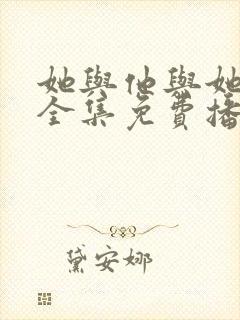 她與他與她
全集免費播
黛安娜